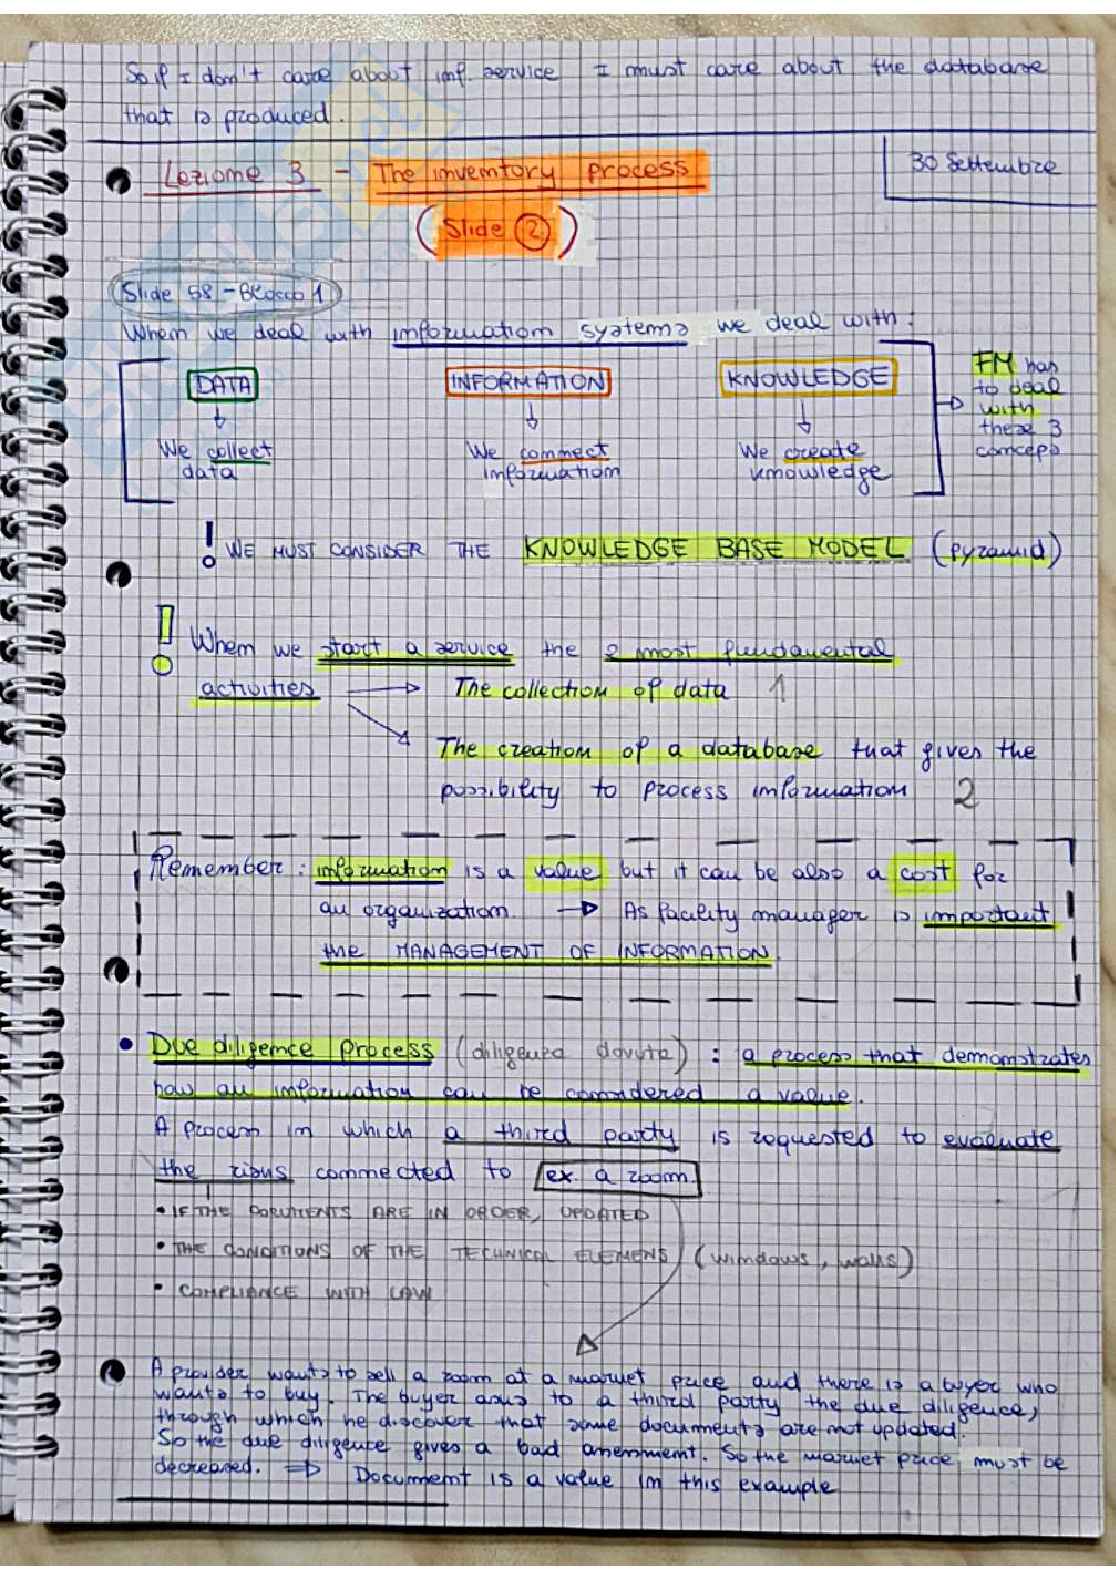 So if I don't care about inf. service I must care about the database
that is produced.
Lezione 3 - The inventory process
30 Settembre
(Slide 2)
Slide 58 - Blocco 1
When we deal with information systems we deal with:
DATA INFORMATION KNOWLEDGE
We collect data
We connect information
We create knowledge
FM has
to deal
with
these 3
conceps
! WE MUST CONSIDER THE KNOWLEDGE BASE MODEL (pyramid)
! When we start a service the 2 most fundamental
activities → The collection of data 1
The creation of a database that gives the
possibility to process information 2
Remember: information is a value but it can be also a cost for
an organization. → As facility manager is important
the MANAGEMENT OF INFORMATION.
• Due diligence process (diligenza dovuta): a process that demonstrates
how an information can be considered a value.
A process in which a third party is requested to evaluate
the risks connected to ex. a room.
• IF THE DOCUMENTS ARE IN ORDER, UPDATED
• THE CONDITIONS OF THE TECHNICAL ELEMENS (windows, walls)
• COMPLIANCE WITH LAW
A provider wants to sell a room at a market price and there is a buyer who
wants to buy. The buyer asks to a third party the due diligence,
through which he discover that some documents are not updated.
So the due diligence gives a bad assessment. So the market price must be
decreased. ⇒ Document is a value in this example